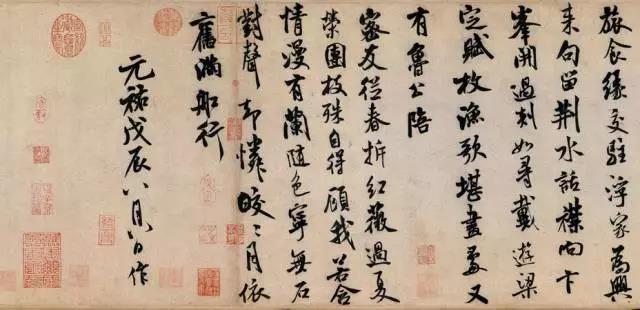 旅食緣交駐浮家為興
來句留荆水話襟向卞
峯開過剡如尋戴遊梁
定賦枚漁歌堪畫處又
有魯公陪
密友從春拆紅薇過夏
榮團枝殊自得顧我若含
情漫有蘭隨色寧無石
對聲却憐皎〻月依
舊滿船行
元祐戊辰八月八日作